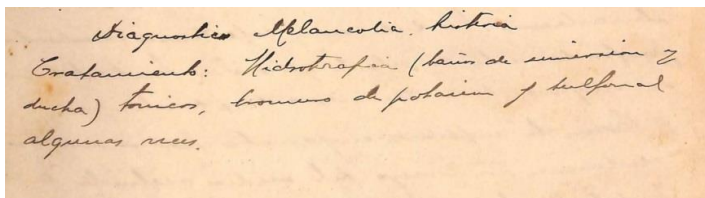 Diagnostico Melancolia. histeria
Tratamiento: Hidroterapia (baños de inmersion y
ducha) tonicos, bromuro de potasium y sulfonal
algunas veces.